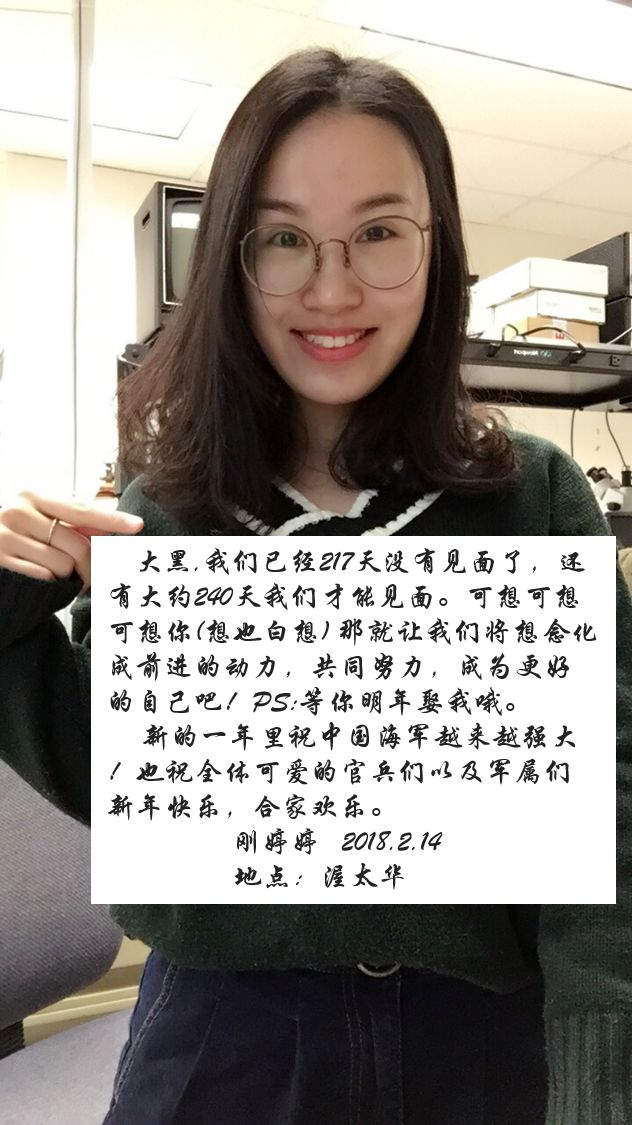 大黑,我们已经217天没有见面了，还
有大约240天我们才能见面。可想可想
可想你(想也白想)那就让我们将想念化
成前进的动力，共同努力，成为更好
的自己吧！PS:等你明年娶我哦。
新的一年里祝中国海军越来越强大
！也祝全体可爱的官兵们以及军属们
新年快乐，合家欢乐。
刚婷婷 2018.2.14
地点：渥太华